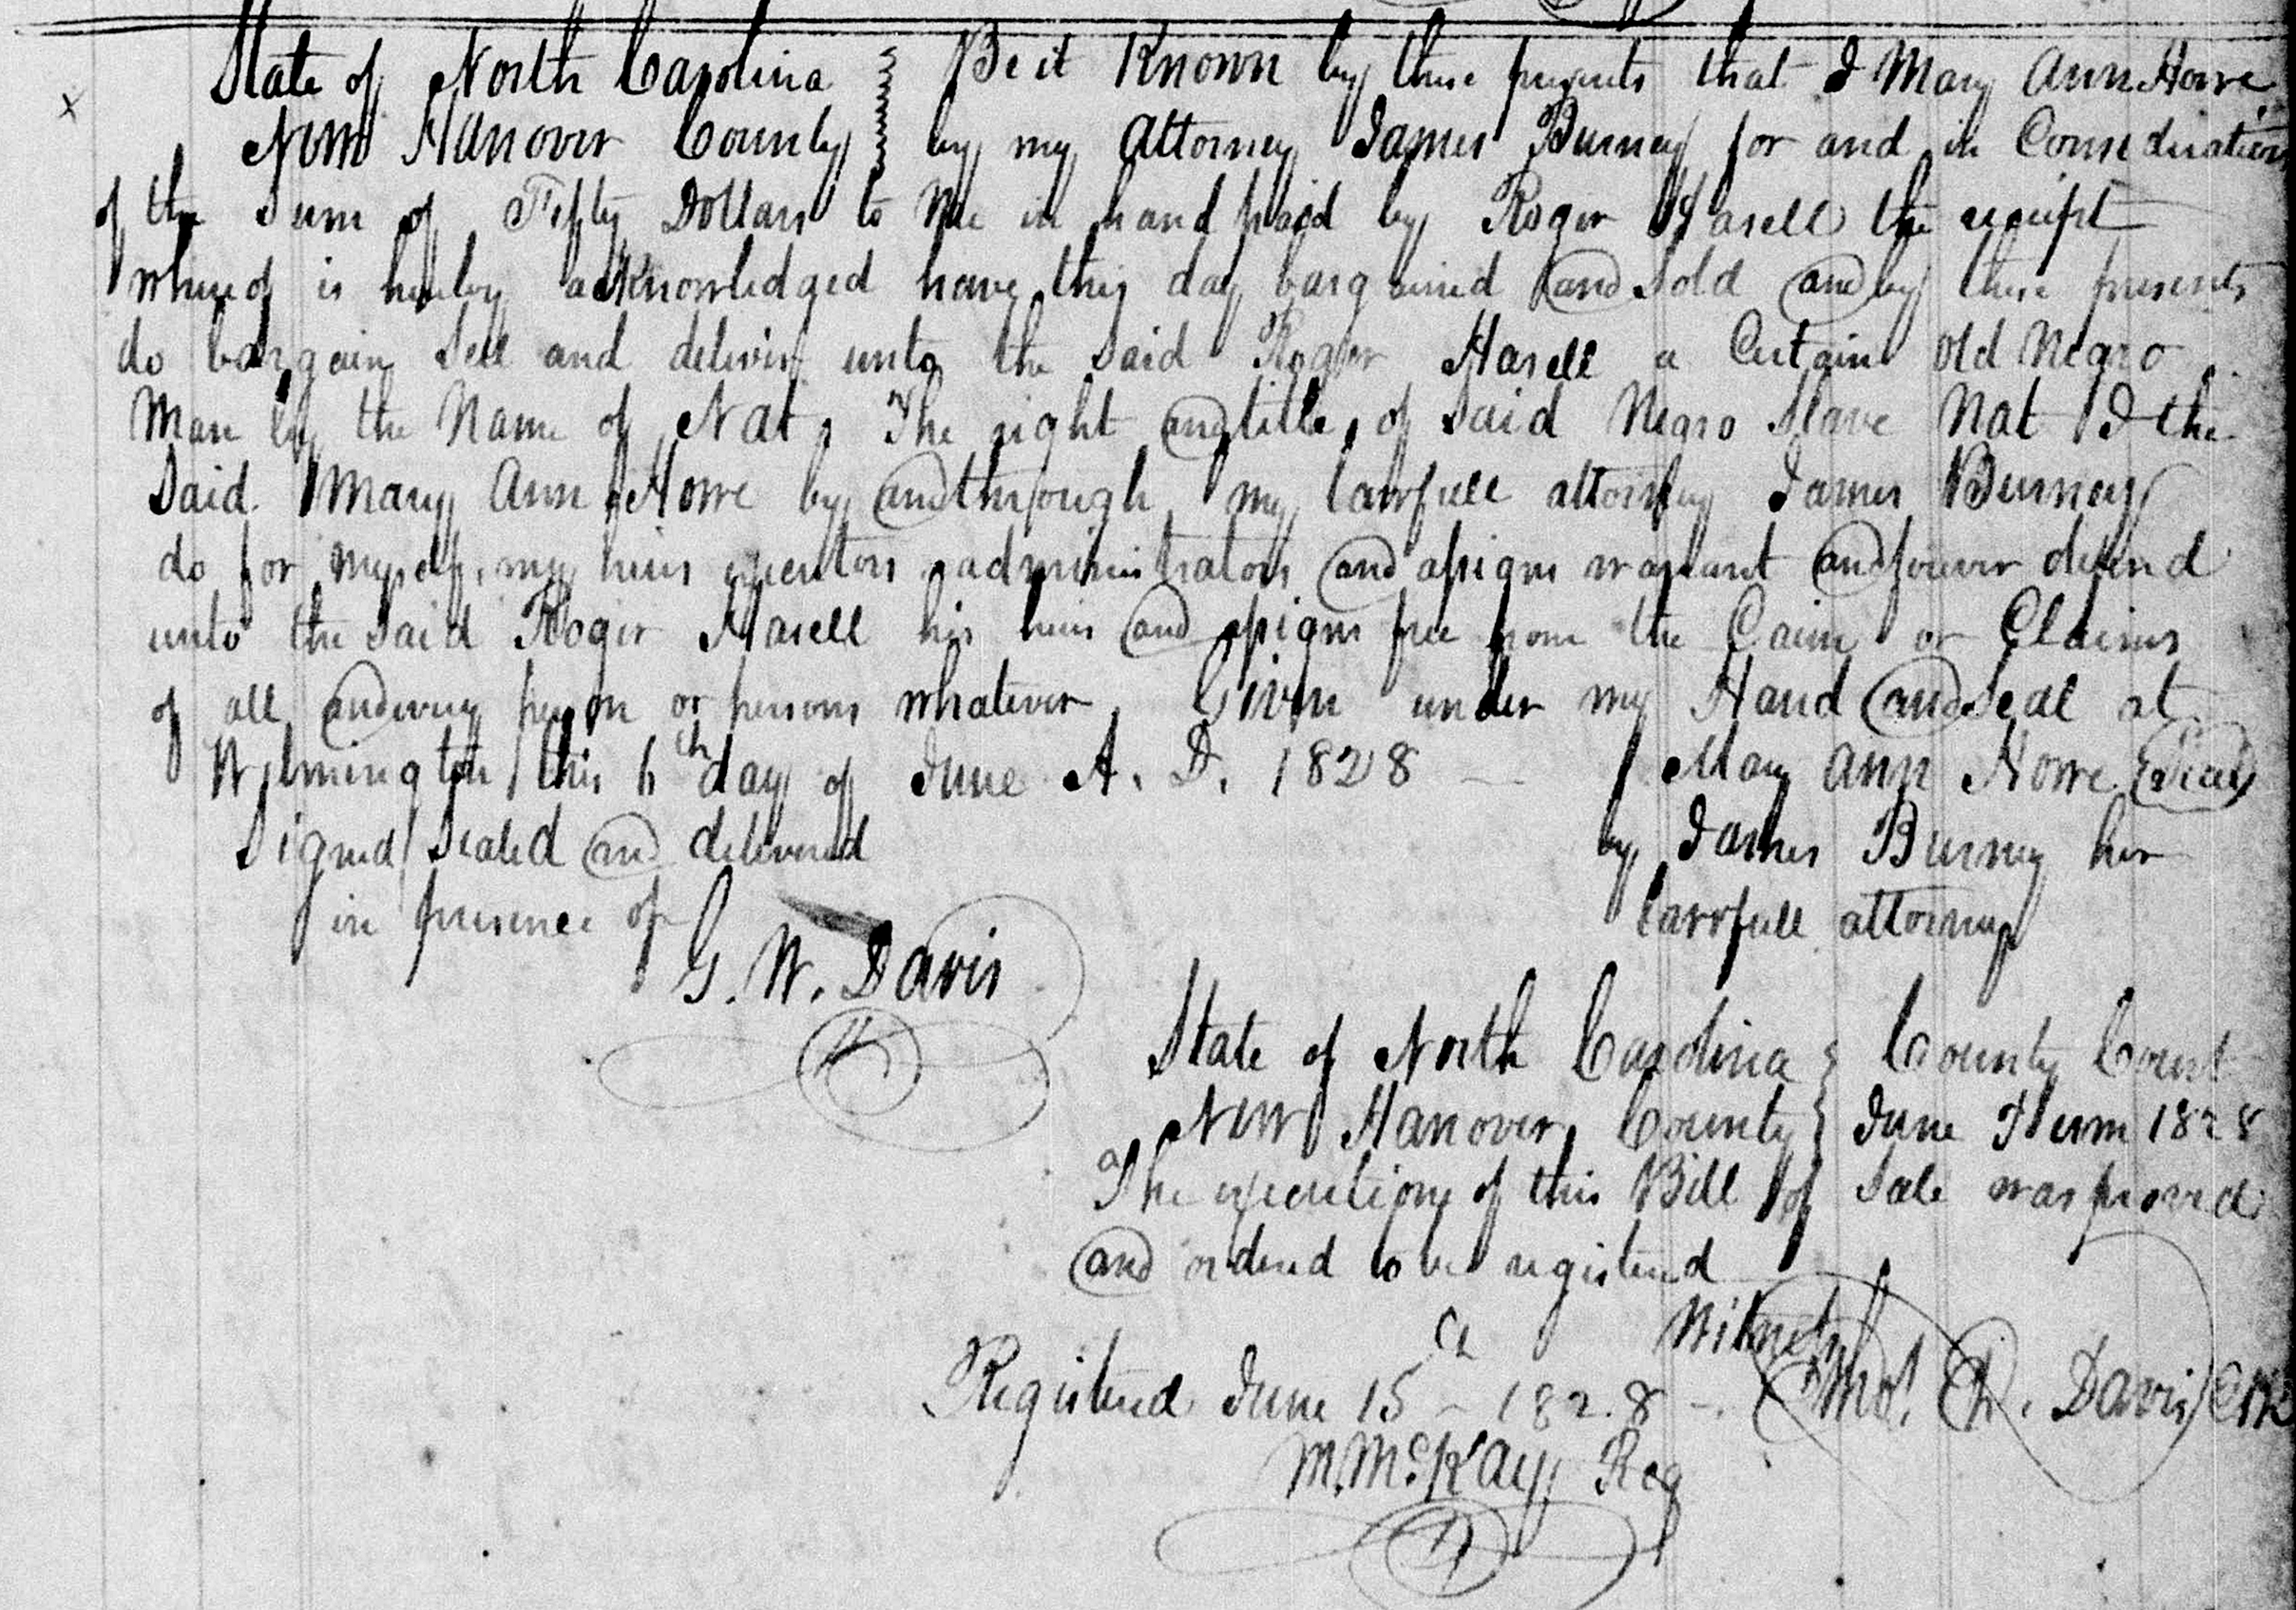 State of North Carolina } Be it Known by these presents that I Mary Ann Howe
New Hanover County } by my Attorney James Burney for and in Consideration
of the Sum of Fifty Dollars to me in hand paid by Roger Hasell the receipt
whereof is hereby acknowledged have this day bargained and Sold and by these presents
do bargain Sell and deliver unto the Said Roger Hasell a Certain old Negro
Man by the Name of Nat, The right and title, of Said Negro Slave Nat I the
Said Mary Ann Howe by and through my lawfull attorney James Burney
do for myself, my heirs executors administrators and assigns warrant and forever defend
unto the Said Roger Hasell his heirs and assigns free from the Caim or Claims
of all and every person or persons whatever. Given under my Hand and Seal at
Wilmington this 6th day of June A. D. 1828 – Mary Ann Howe (Seal)
Signed Sealed and delivered by James Burney her
in presence of lawfull attorney
G. W. Davis
State of North Carolina } County Court
New Hanover County } June Term 1828
The execution of this Bill of Sale was proved
and ordered to be registered
Witness
Registered June 15 – 1828 – Thos. Davis Clk
M. McKay, Reg